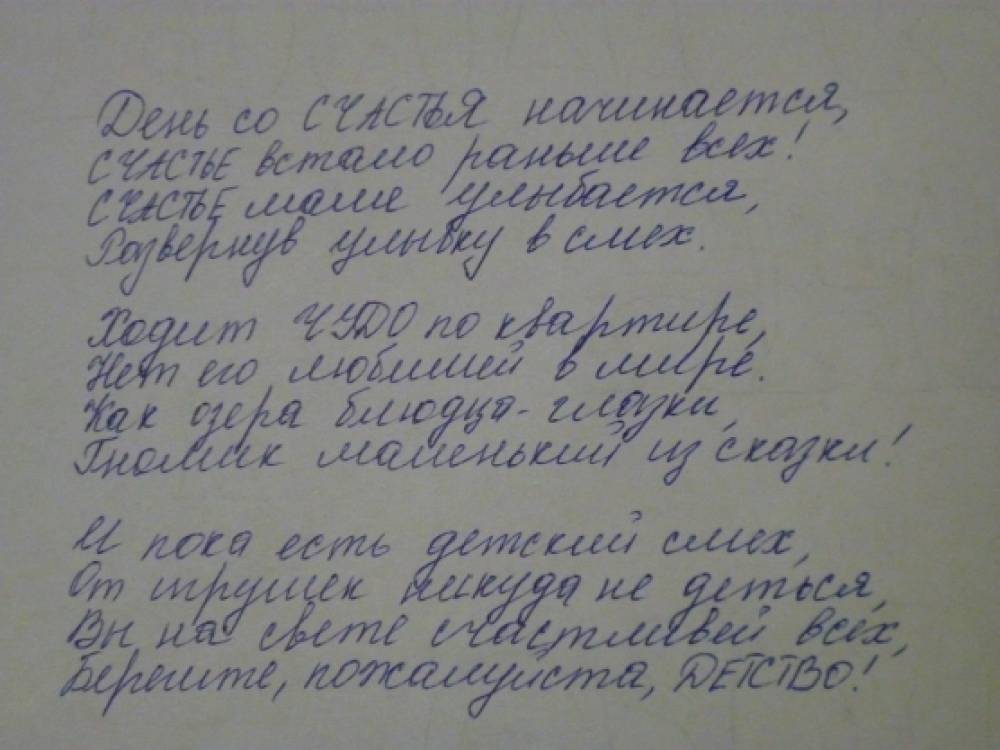 День со СЧАСТЬЯ начинается,
СЧАСТЬЕ встало раньше всех!
СЧАСТЬЕ маме улыбается,
Развернув улыбку в смех.
Ходит ЧУДО по квартире,
Нет его любимей в мире.
Как озера блюдца-глазки,
Гномик маленький из сказки!
И пока есть детский смех,
От игрушек никуда не деться,
Вы на свете счастливей всех,
Берегите, пожалуйста, ДЕТСТВО!